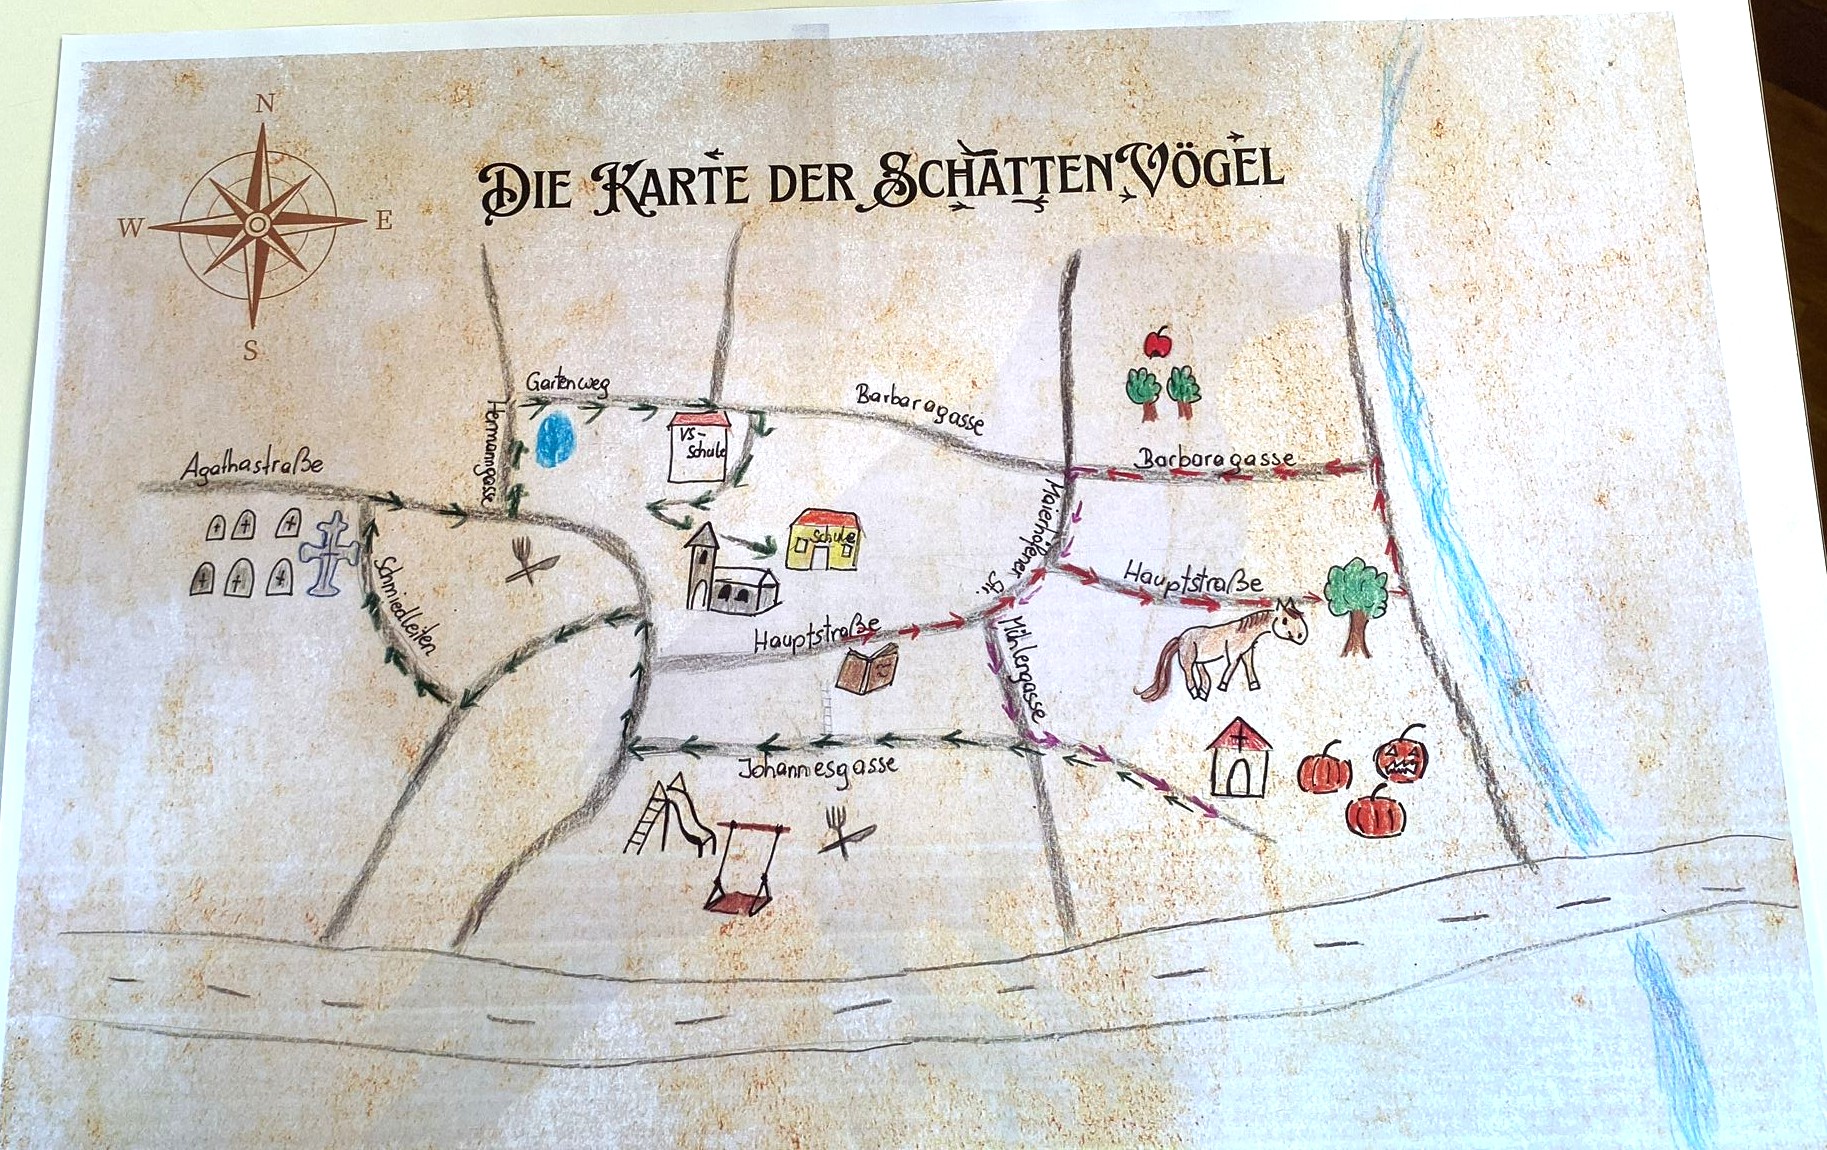 N
W E
S
DIE KARTE DER SCHATTENVÖGEL
Gartenweg
Barbaragasse
Hermanngasse
VS-
Schule
Agathastraße
Barbaragasse
Maierhofener Str.
Schule
Schmiedleiten
Hauptstraße
Hauptstraße
Mühlengasse
Johannesgasse